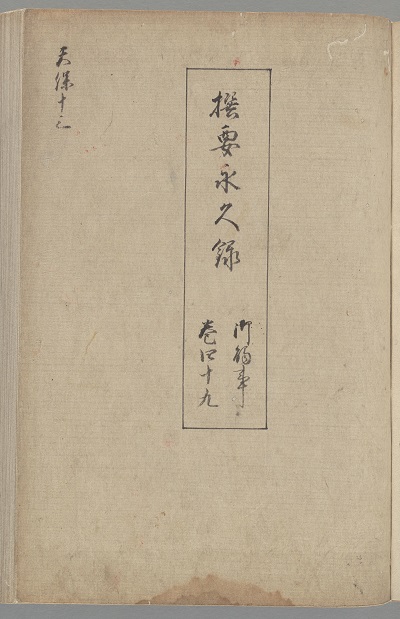 撰要永久録
御触事
巻四十九
天保十二